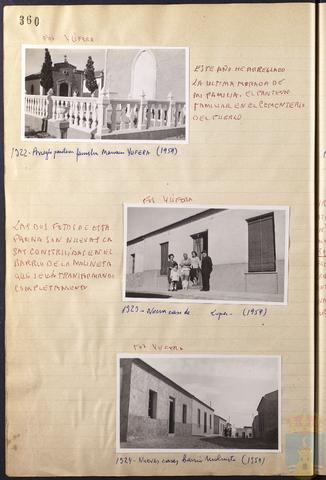 360
FOT YUFERA
ESTE AÑO HE ARREGLADO
LA ULTIMA MORADA DE
MI FAMILIA. EL PANTEON
FAMILIAR EN EL CEMENTERIO
DEL PUEBLO
1922 - Arreglo panteon familia YUFERA (1959)
FOT YUFERA
LAS DOS FOTOS DE ESTA
PAGINA SON NUEVAS CA
SAS CONSTRUIDAS EN EL
BARRIO DE LA MOLINETA
QUE SE VA TRANSFORMANDO
COMPLETAMENTE
1923 - Nueva casa de Lopez - (1959)
FOT YUFERA
1924 - Nuevas casas barrio Molineta (1959)